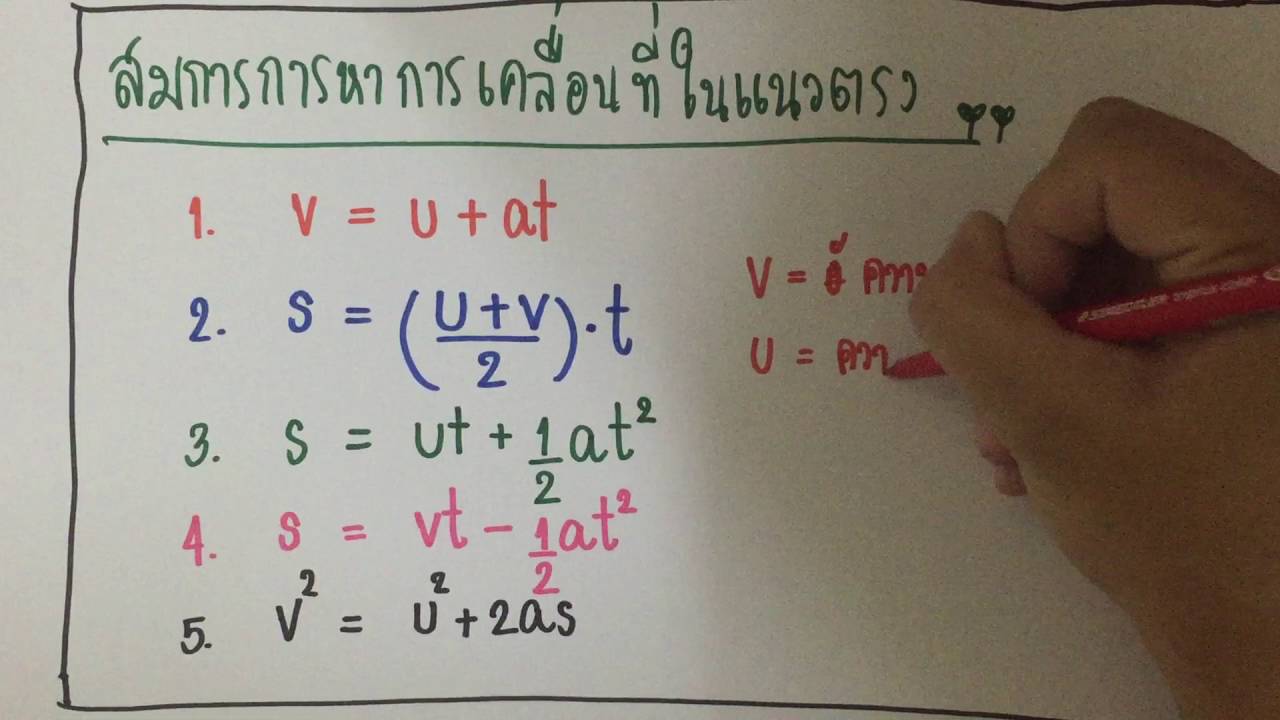 สมการการหาการเคลื่อนที่ในแนวตรง
1. v = u + at
2. s = (u+v/2)·t
3. s = ut + 1/2at²
4. s = vt - 1/2at²
5. v² = u² + 2as
v =
u =